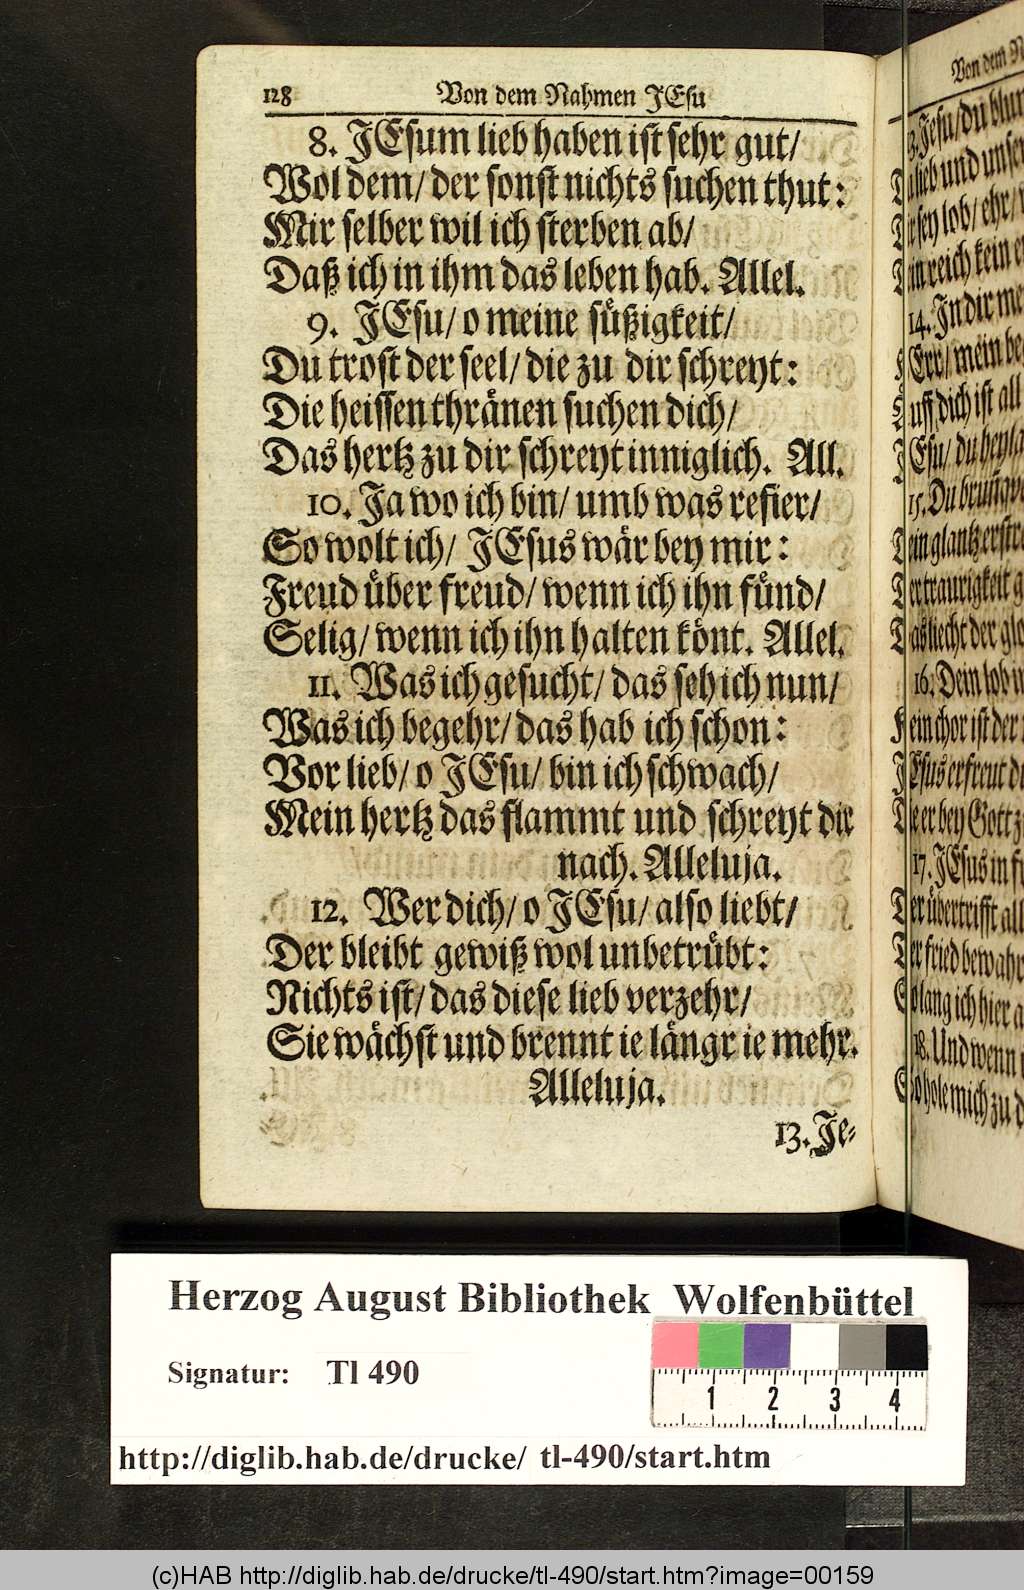 128 Von dem Nahmen JEsu
8. JEsum lieb haben ist sehr gut/
Wol dem/ der sonst nichts suchen thut:
Mir selber wil ich sterben ab/
Daß ich in ihm das leben hab. Allel.
9. JEsu/ o meine süßigkeit/
Du trost der seel/ die zu dir schreyt:
Die heissen thränen suchen dich/
Das hertz zu dir schreyt inniglich. All.
10. Ja wo ich bin/ umb was refier/
So wolt ich/ JEsus wär bey mir:
Freud über freud/ wenn ich ihn fünd/
Selig/ wenn ich ihn halten könt. Allel.
11. Was ich gesucht/ das seh ich nun/
Was ich begehr/ das hab ich schon:
Vor lieb/ o JEsu/ bin ich schwach/
Mein hertz das flammt und schreyt dir
nach. Alleluja.
12. Wer dich/ o JEsu/ also liebt/
Der bleibt gewiß wol unbetrübt:
Nichts ist/ das diese lieb verzehr/
Sie wächst und brennt ie längr ie mehr.
Alleluja.
13. Je-
Von dem
Jesu/ du
lieb und
sey lob/ ehr/
reich kein
14. In dir
mein
uff dich ist all
JEsu/ du
15. Du
glantz
traurigkeit
liecht der
16. Dein lob
chor ist der
JEsus erfreut
er bey Gott
17. JEsus in
Der übertrifft
fried
lang ich hier
18. Und wenn
So hole mich zu
Herzog August Bibliothek Wolfenbüttel
Signatur: Tl 490
1 2 3 4
http://diglib.hab.de/drucke/ tl-490/start.htm
(c)HAB http://diglib.hab.de/drucke/tl-490/start.htm?image=00159